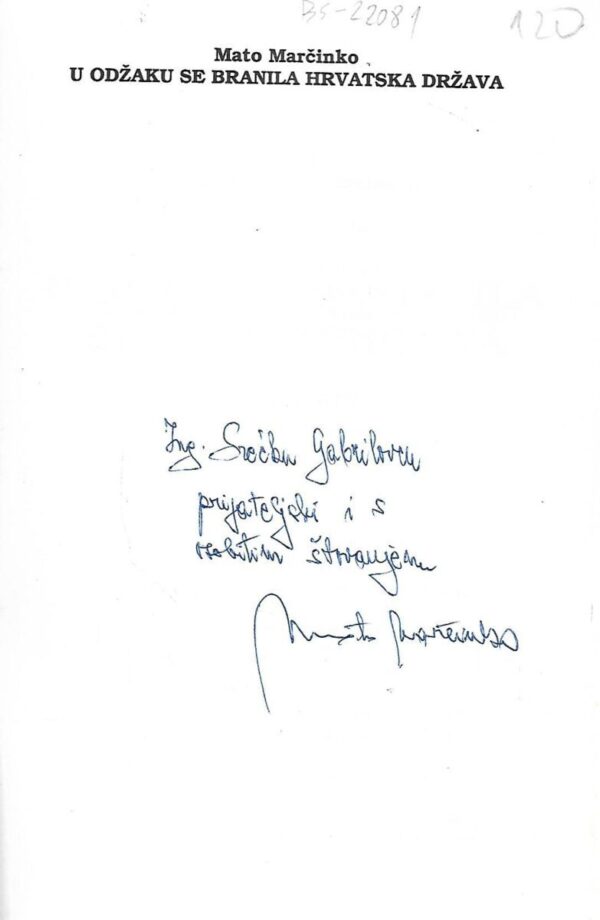 BS-22081 120
Mato Marčinko
U ODŽAKU SE BRANILA HRVATSKA DRŽAVA
Ing. Srećku Gabrilovcu
prijateljski i s
osobitim štovanjem
Mato Marčinko